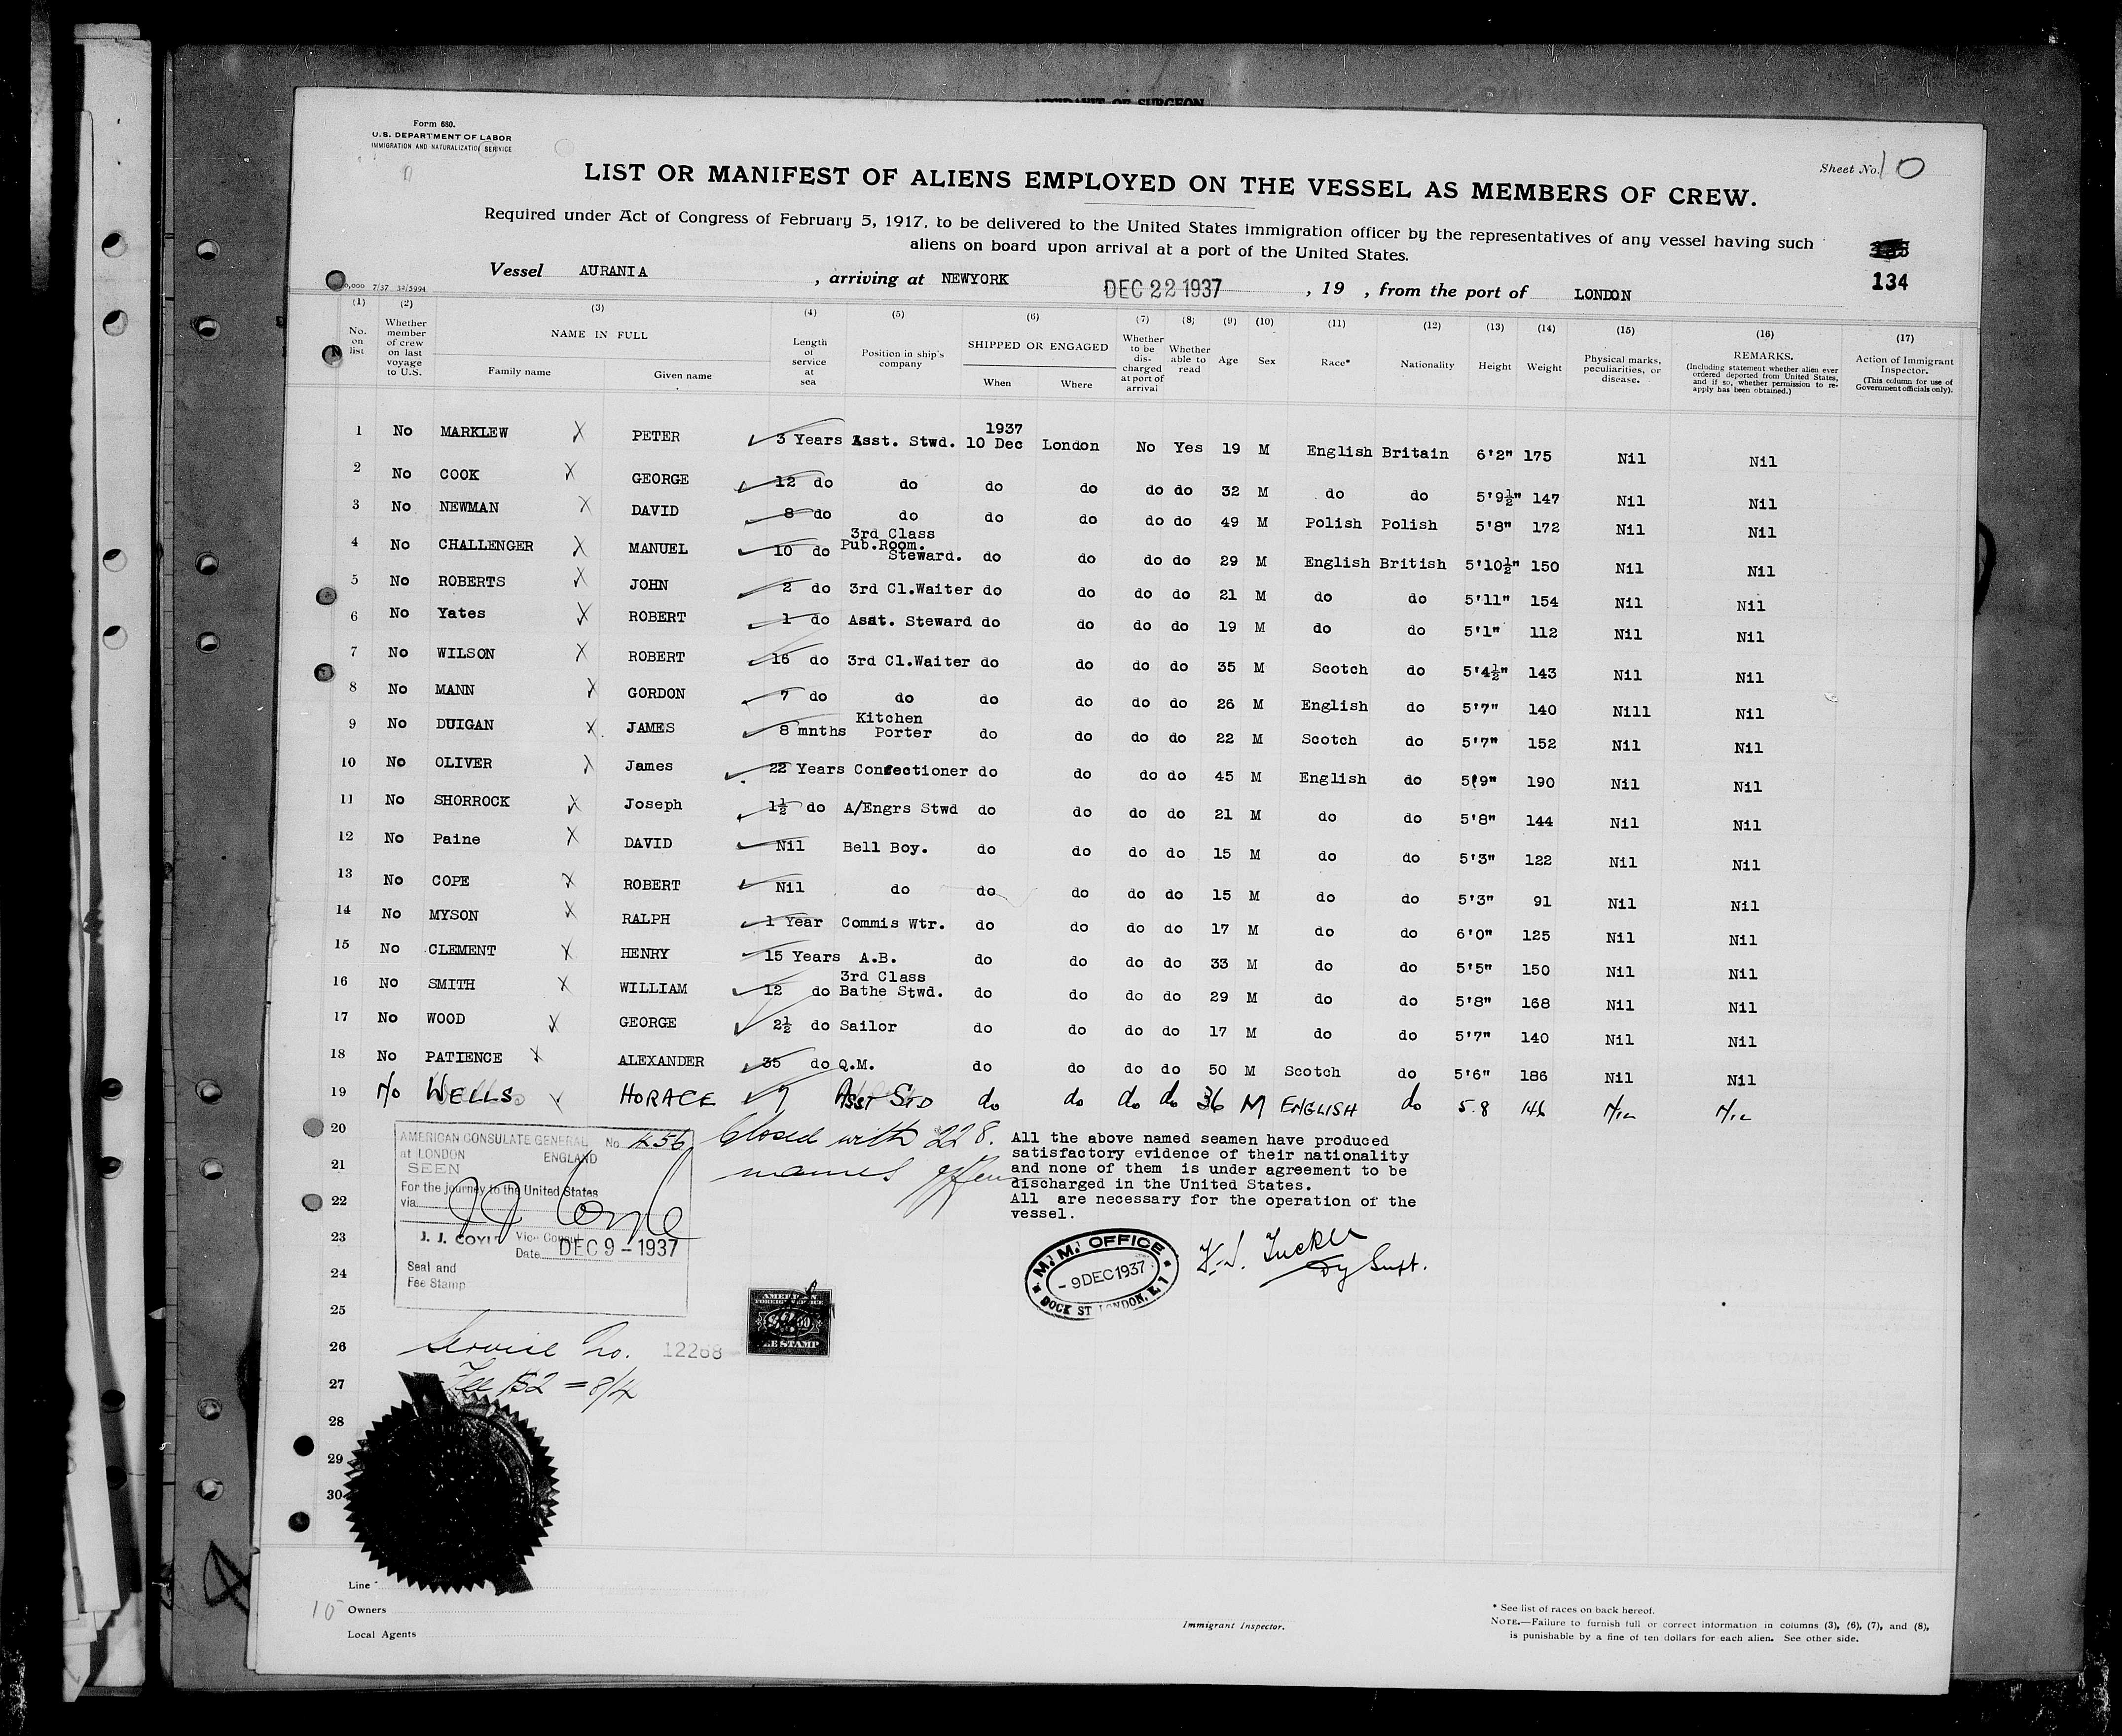 AFFIDAVIT OF SURGEON
Form 680.
U.S. DEPARTMENT OF LABOR
IMMIGRATION AND NATURALIZATION SERVICE
Sheet No. 10
LIST OR MANIFEST OF ALIENS EMPLOYED ON THE VESSEL AS MEMBERS OF CREW.
Required under Act of Congress of February 5, 1917, to be delivered to the United States immigration officer by the representatives of any vessel having such
aliens on board upon arrival at a port of the United States.
134
Vessel AURANIA , arriving at NEWYORK DEC 22 1937 , 19 , from the port of LONDON
(1) (2) (3) (4) (5) (6) (7) (8) (9) (10) (11) (12) (13) (14) (15) (16) (17)
No. on list
Whether member of crew on last voyage to U.S.
NAME IN FULL
Family name Given name
Length of service at sea
Position in ship's company
SHIPPED OR ENGAGED
When Where
Whether to be discharged at port of arrival
Whether able to read
Age
Sex
Race*
Nationality
Height
Weight
Physical marks, peculiarities, or disease.
REMARKS.
(Including statement whether alien ever ordered deported from United States, and if so, whether permission to re-apply has been obtained.)
Action of Immigrant Inspector.
(This column for use of Government officials only).
1 No MARKLEW X PETER 3 Years Asst. Stwd. 1937 10 Dec London No Yes 19 M English Britain 6'2" 175 Nil Nil
2 No COOK X GEORGE 12 do do do do do do 32 M do do 5'9½" 147 Nil Nil
3 No NEWMAN X DAVID 8 do do do do do do 49 M Polish Polish 5'8" 172 Nil Nil
4 No CHALLENGER X MANUEL 10 do 3rd Class Pub.Room. Steward. do do do do 29 M English British 5'10½" 150 Nil Nil
5 No ROBERTS X JOHN 2 do 3rd Cl.Waiter do do do do 21 M do do 5'11" 154 Nil Nil
6 No Yates X ROBERT 1 do Asst. Steward do do do do 19 M do do 5'1" 112 Nil Nil
7 No WILSON X ROBERT 16 do 3rd Cl.Waiter do do do do 35 M Scotch do 5'4½" 143 Nil Nil
8 No MANN X GORDON 7 do do do do do do 26 M English do 5'7" 140 Nill Nil
9 No DUIGAN X JAMES 8 mnths Kitchen Porter do do do do 22 M Scotch do 5'7" 152 Nil Nil
10 No OLIVER X James 22 Years Confectioner do do do do 45 M English do 5'9" 190 Nil Nil
11 No SHORROCK X Joseph 1½ do A/Engrs Stwd do do do do 21 M do do 5'8" 144 Nil Nil
12 No Paine X DAVID Nil Bell Boy. do do do do 15 M do do 5'3" 122 Nil Nil
13 No COPE X ROBERT Nil do do do do do 15 M do do 5'3" 91 Nil Nil
14 No MYSON X RALPH 1 Year Commis Wtr. do do do do 17 M do do 6'0" 125 Nil Nil
15 No CLEMENT X HENRY 15 Years A.B. do do do do 33 M do do 5'5" 150 Nil Nil
16 No SMITH X WILLIAM 12 do 3rd Class Bathe Stwd. do do do do 29 M do do 5'8" 168 Nil Nil
17 No WOOD X GEORGE 2½ do Sailor do do do do 17 M do do 5'7" 140 Nil Nil
18 No PATIENCE X ALEXANDER 35 do Q.M. do do do do 50 M Scotch do 5'6" 186 Nil Nil
19 No WELLS HORACE 9 Asst STD do do do do 36 M ENGLISH do 5.8 146 Nil Nil
20
21
22
23
24
25
26
27
28
29
30
AMERICAN CONSULATE GENERAL No. 456
at LONDON ENGLAND
SEEN
For the journey to the United States
via
J. J. Coyle
J. J. COYLE Vice Consul
Date DEC 9 - 1937
Seal and
Fee Stamp
Closed with 228.
names
All the above named seamen have produced
satisfactory evidence of their nationality
and none of them is under agreement to be
discharged in the United States.
All are necessary for the operation of the
vessel.
M.M. OFFICE
- 9 DEC 1937
DOCK ST LONDON, E.1
Tucker
Dy Supt.
AMERICAN
FOREIGN SERVICE
$2.00
FEE STAMP
Service No. 12268
Fee $2 = 8/4
Line
15 Owners
Local Agents
Immigrant Inspector.
* See list of races on back hereof.
NOTE.—Failure to furnish full or correct information in columns (3), (6), (7), and (8),
is punishable by a fine of ten dollars for each alien. See other side.